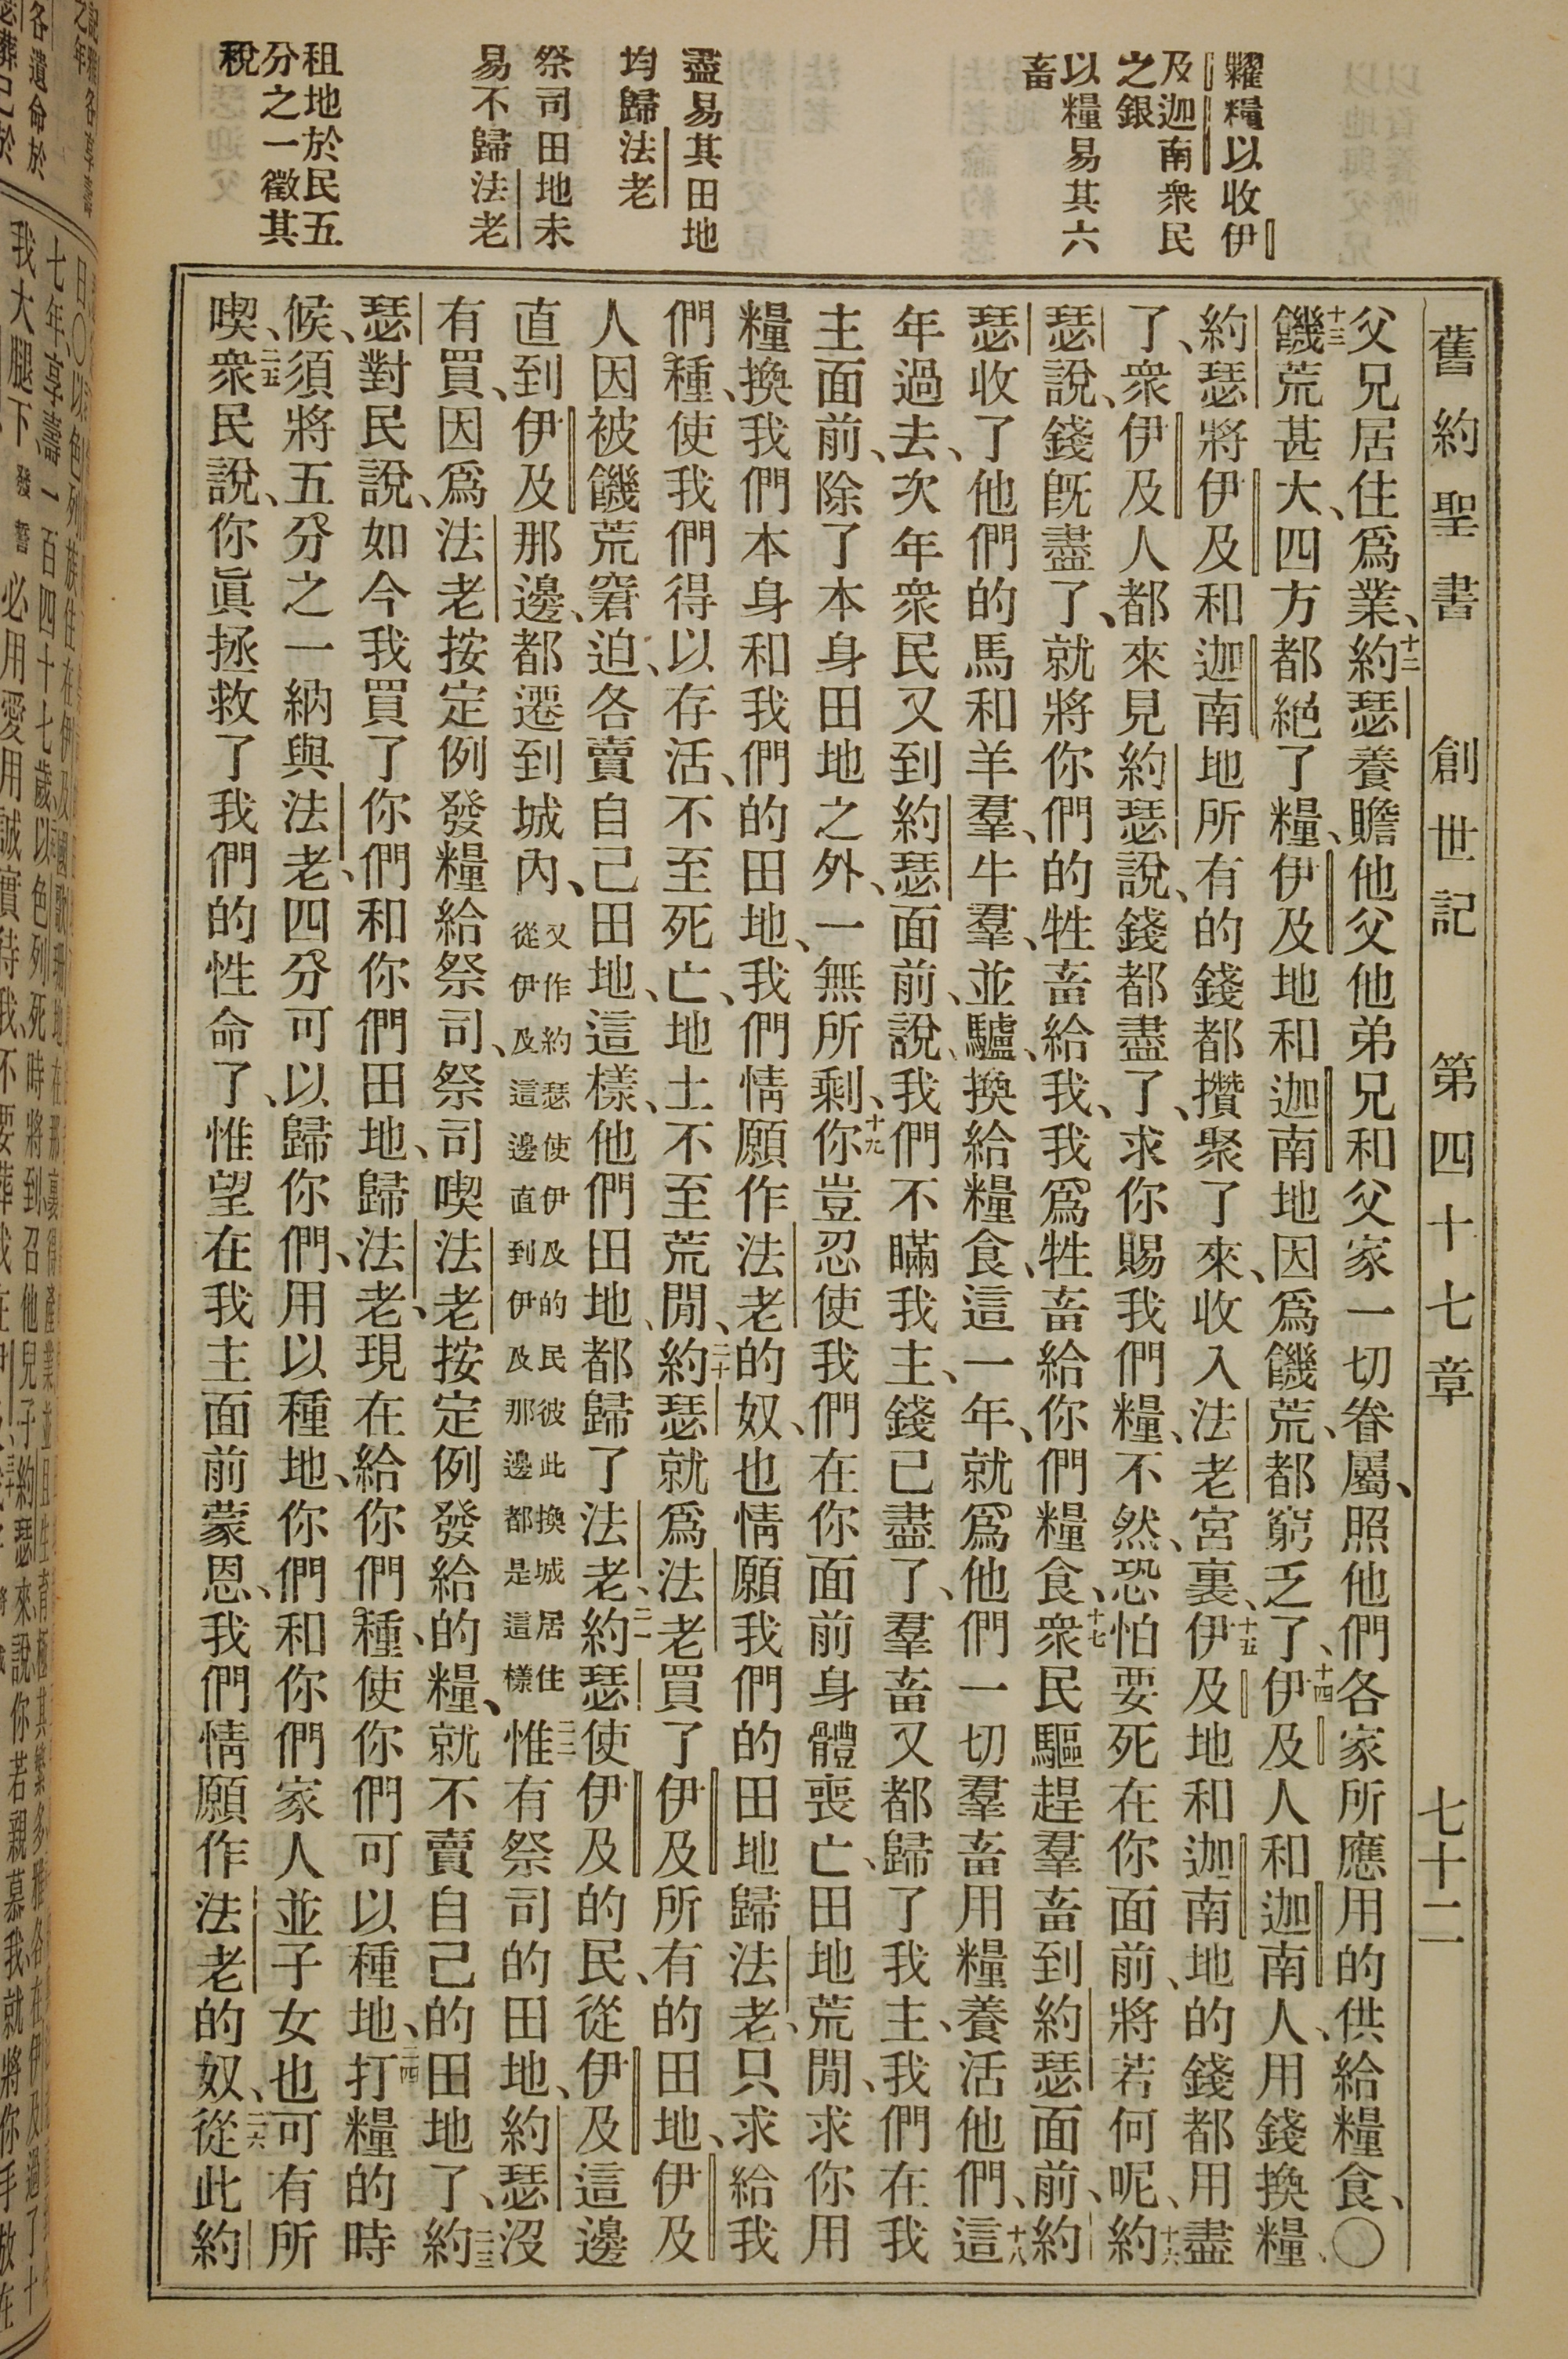 舊約聖書 創世記 第四十七章 七十二
糶糧以收伊
及迦南衆民
之銀
以糧易其六
畜
盡易其田地
均歸法老
祭司田地未
易不歸法老
租地於民五
分之一徵其
稅
父兄居住爲業、十二約瑟養贍他父他弟兄和父家一切眷屬、照他們各家所應用的供給糧食、〇
十三饑荒甚大、四方都絕了糧、伊及地和迦南地因爲饑荒、都窮乏了、十四伊及人和迦南人、用錢換糧、
約瑟將伊及和迦南地所有的錢都攢聚了來、收入法老宮裏、十五伊及地和迦南地的錢都用盡
了、衆伊及人都來見約瑟說、錢都盡了、求你賜我們糧、不然、恐怕要死在你面前、將若何呢、十六約
瑟說、錢旣盡了、就將你們的牲畜給我、我爲牲畜給你們糧食、十七衆民驅趕羣畜到約瑟面前、約
瑟收了他們的馬和羊羣、牛羣、並驢、換給糧食、這一年、就爲他們一切羣畜用糧養活他們、十八這
年過去、次年衆民又到約瑟面前、說、我們不瞞我主、錢已盡了、羣畜又都歸了我主、我們在我
主面前、除了本身田地之外、一無所剩、十九你豈忍使我們在你面前身體喪亡、田地荒閒、求你用
糧換我們本身和我們的田地、我們情願作法老的奴、也情願我們的田地歸法老、只求給我
們種、使我們得以存活、不至死亡、地土不至荒閒、二十約瑟就爲法老買了伊及所有的田地、伊及
人因被饑荒窘迫、各賣自己田地、這樣、他們田地、都歸了法老、二一約瑟使伊及的民、從伊及這邊
直到伊及那邊、都遷到城內、又作約瑟使伊及的民彼此換城居住從伊及這邊直到伊及那邊都是這樣二二惟有祭司的田地、約瑟沒
有買、因爲法老按定例發糧給祭司、祭司喫法老按定例發給的糧、就不賣自己的田地了、二三約
瑟對民說、如今我買了你們和你們田地、歸法老、現在給你們種、使你們可以種地、二四打糧的時
候、須將五分之一納與法老、四分可以歸你們、用以種地、你們和你們家人並子女也可有所
喫、二五衆民說、你眞拯救了我們的性命了、惟望在我主面前蒙恩、我們情願作法老的奴、二六從此約